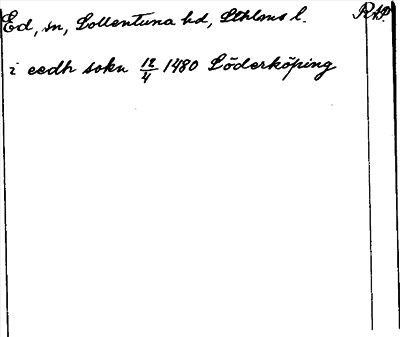 Ed, sn, Sollentuna hd, Sthlms l. RAp
i eedh sokn 12/4 1480 Söderköping